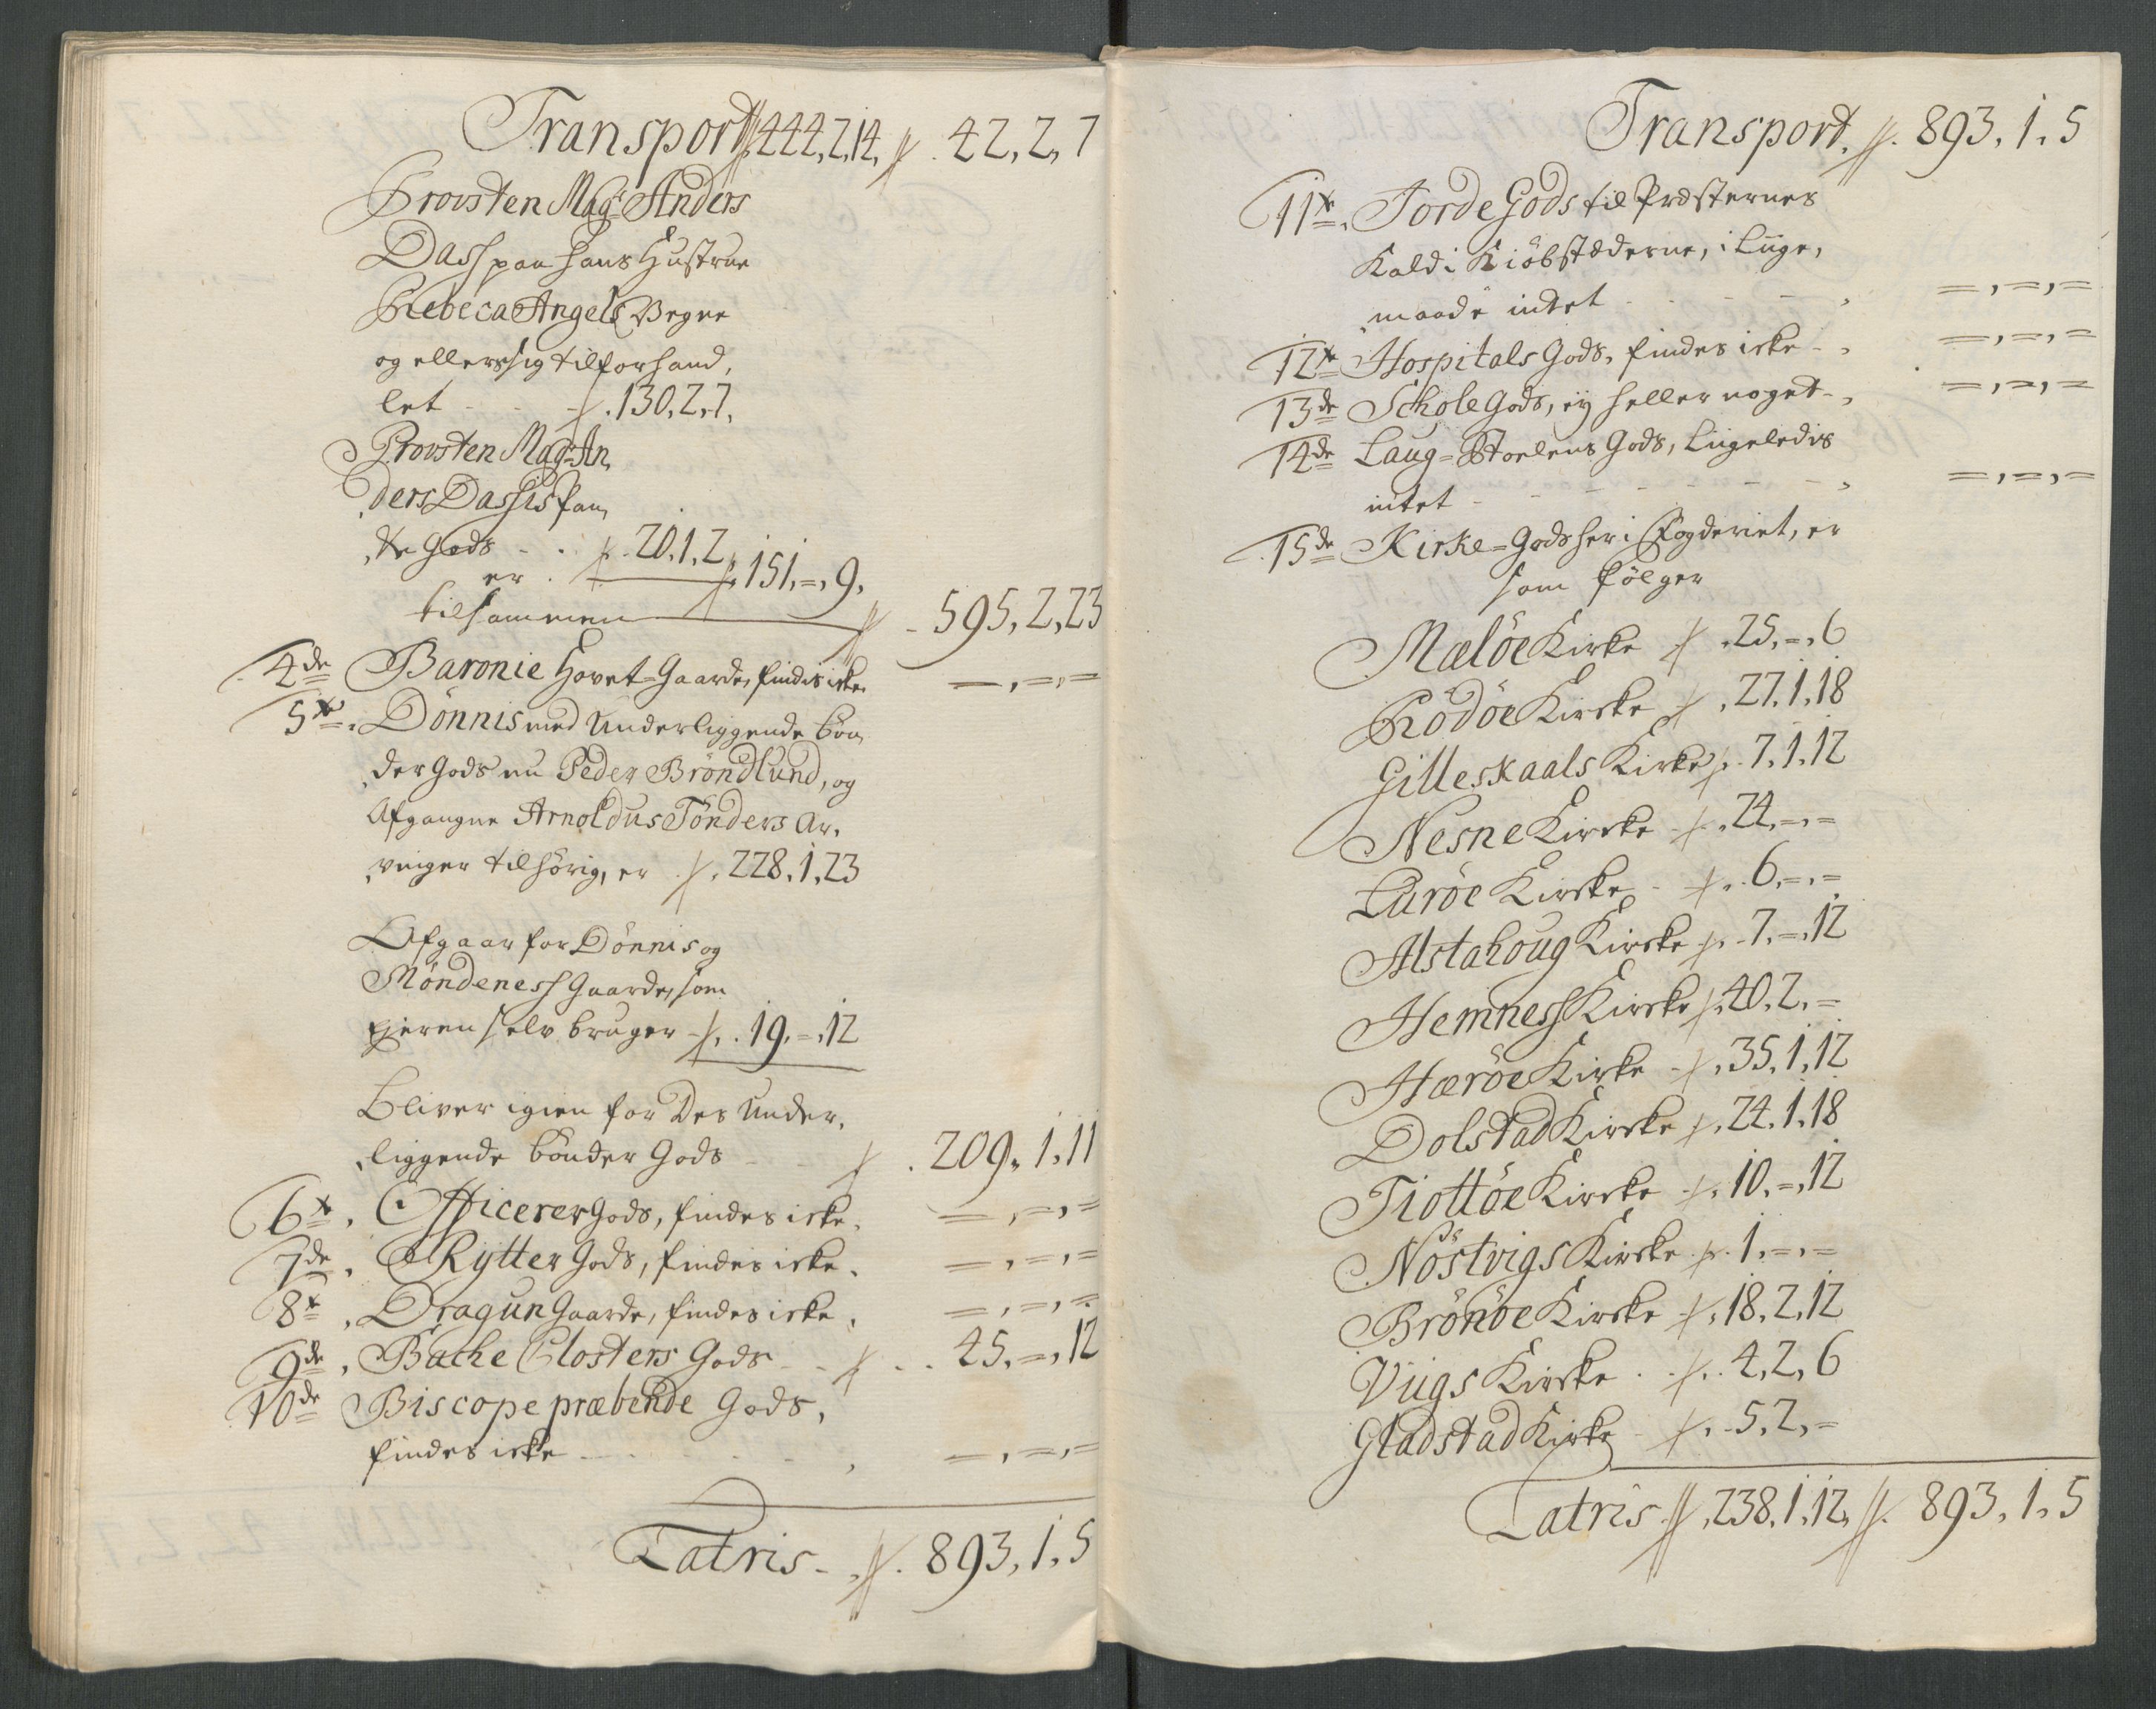 Transport 444,2,14, 42,2,7
Provsten Mag: Anders
Dass paa hans Hustrue
Rebeca Angels Vegne
og ellers sig tilforhand,
let - - 130,2,7,
Provsten Mag: An,
ders Dassis Pan,
te Gods - - 20,1,2
er 151,=,9,
tilsammen 595,2,23
4de Baronie Hovet-Gaarde, findis icke =,=,=
5te Dönnis med Underliggende Bön,
der Gods nu Peder Bröndlund, og
Afgangne Arnoldus Tönders Ar,
vinger tilhörig, er 228,1,23
Afgaar for Dönnis og
Möndeness Gaarde, som
Ejeren selv bruger 19,=,12
Bliver igien for Des Under,
liggende Bönder Gods - - 209,1,11
6te Officerer Gods, findes icke =,=,=
7de Rytter Gods, findes icke =,=,=
8te Dragun Gaarde, findes icke =,=,=
9de Bache Closters Gods - - 45,=,12
10de Biscope præbende Gods,
findes icke =,=,=
Latris - 893,1,5
Transport 893,1,5
11te Jorde Gods til Præsternes
Kald i Kiöbstæderne, i Liige,
maade intet - - =,=,=
12te Hospitals Gods, findes icke - =,=,=
13de Schole Gods, ej heller noget - =,=,=
14de Laug-Stoelens Gods, Liigeledis
intet - - =,=,=
15de Kirke-Gods her i Fogderiet, er
som fölger
Mælöe Kirke 25,=,6
Rödöe Kirke 27,1,18
Gilleskaals Kirke 7,1,12
Nesne Kirke 24,=,=
Luröe Kirke 6,=,=
Alstahoug Kirke 7,=,12
Hemness Kirke 40,2,=
Hæröe Kirke 35,1,12
Dolstad Kirke 24,1,18
Tiottöe Kirke 10,=,12
Nöstvigs Kirke 1,=,=
Brönöe Kirke 18,2,12
Viigs Kirke 4,2,6
Gladstad Kirke 5,2,=
Latris 238,1,12, 893,1,5